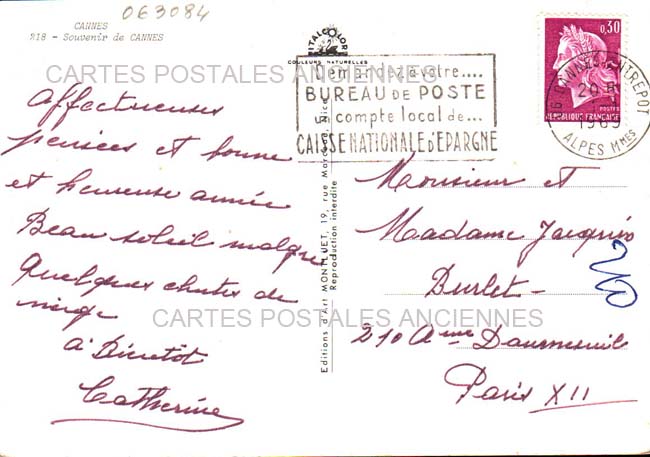 063084
CANNES
218 - Souvenir de CANNES
ITALCOLOR
COULEURS NATURELLES
Demandez à votre....
BUREAU DE POSTE
un compte local de...
CAISSE NATIONALE D'EPARGNE
0,30
POSTES
REPUBLIQUE FRANÇAISE
06 CANNES ENTREPOT
20 H
1969
ALPES MMES
CARTES POSTALES ANCIENNES
Affectueuses
pensées et bonne
et heureuse année
Beau soleil malgré
Quelques chutes de
neige
à Bientôt
Catherine
Editions d'Art MONTLUET, 19, rue Marceau, Nice
Reproduction interdite
Monsieur et
Madame Jacques
Burlet
210 Ave Daumesnil
Paris XII
CARTES POSTALES ANCIENNES